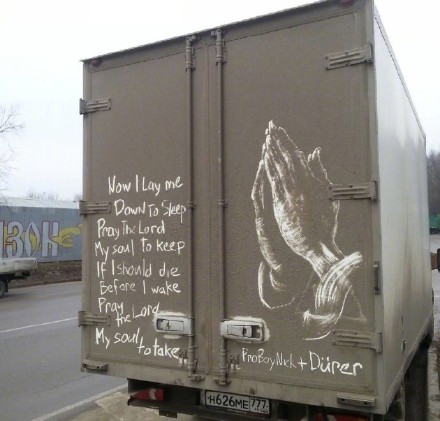 Now I Lay me
Down To Sleep
Pray The Lord
My soul to keep
If I should die
Before I wake
Pray
the Lord
My soul
to take
ProBoyNick + Dürer
ИЗОН
Н626МЕ 777